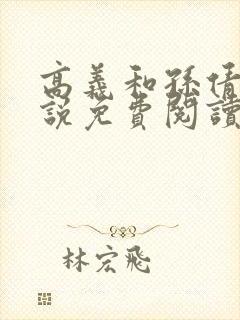 高義和孫倩
說免費閱讀
林宏飛